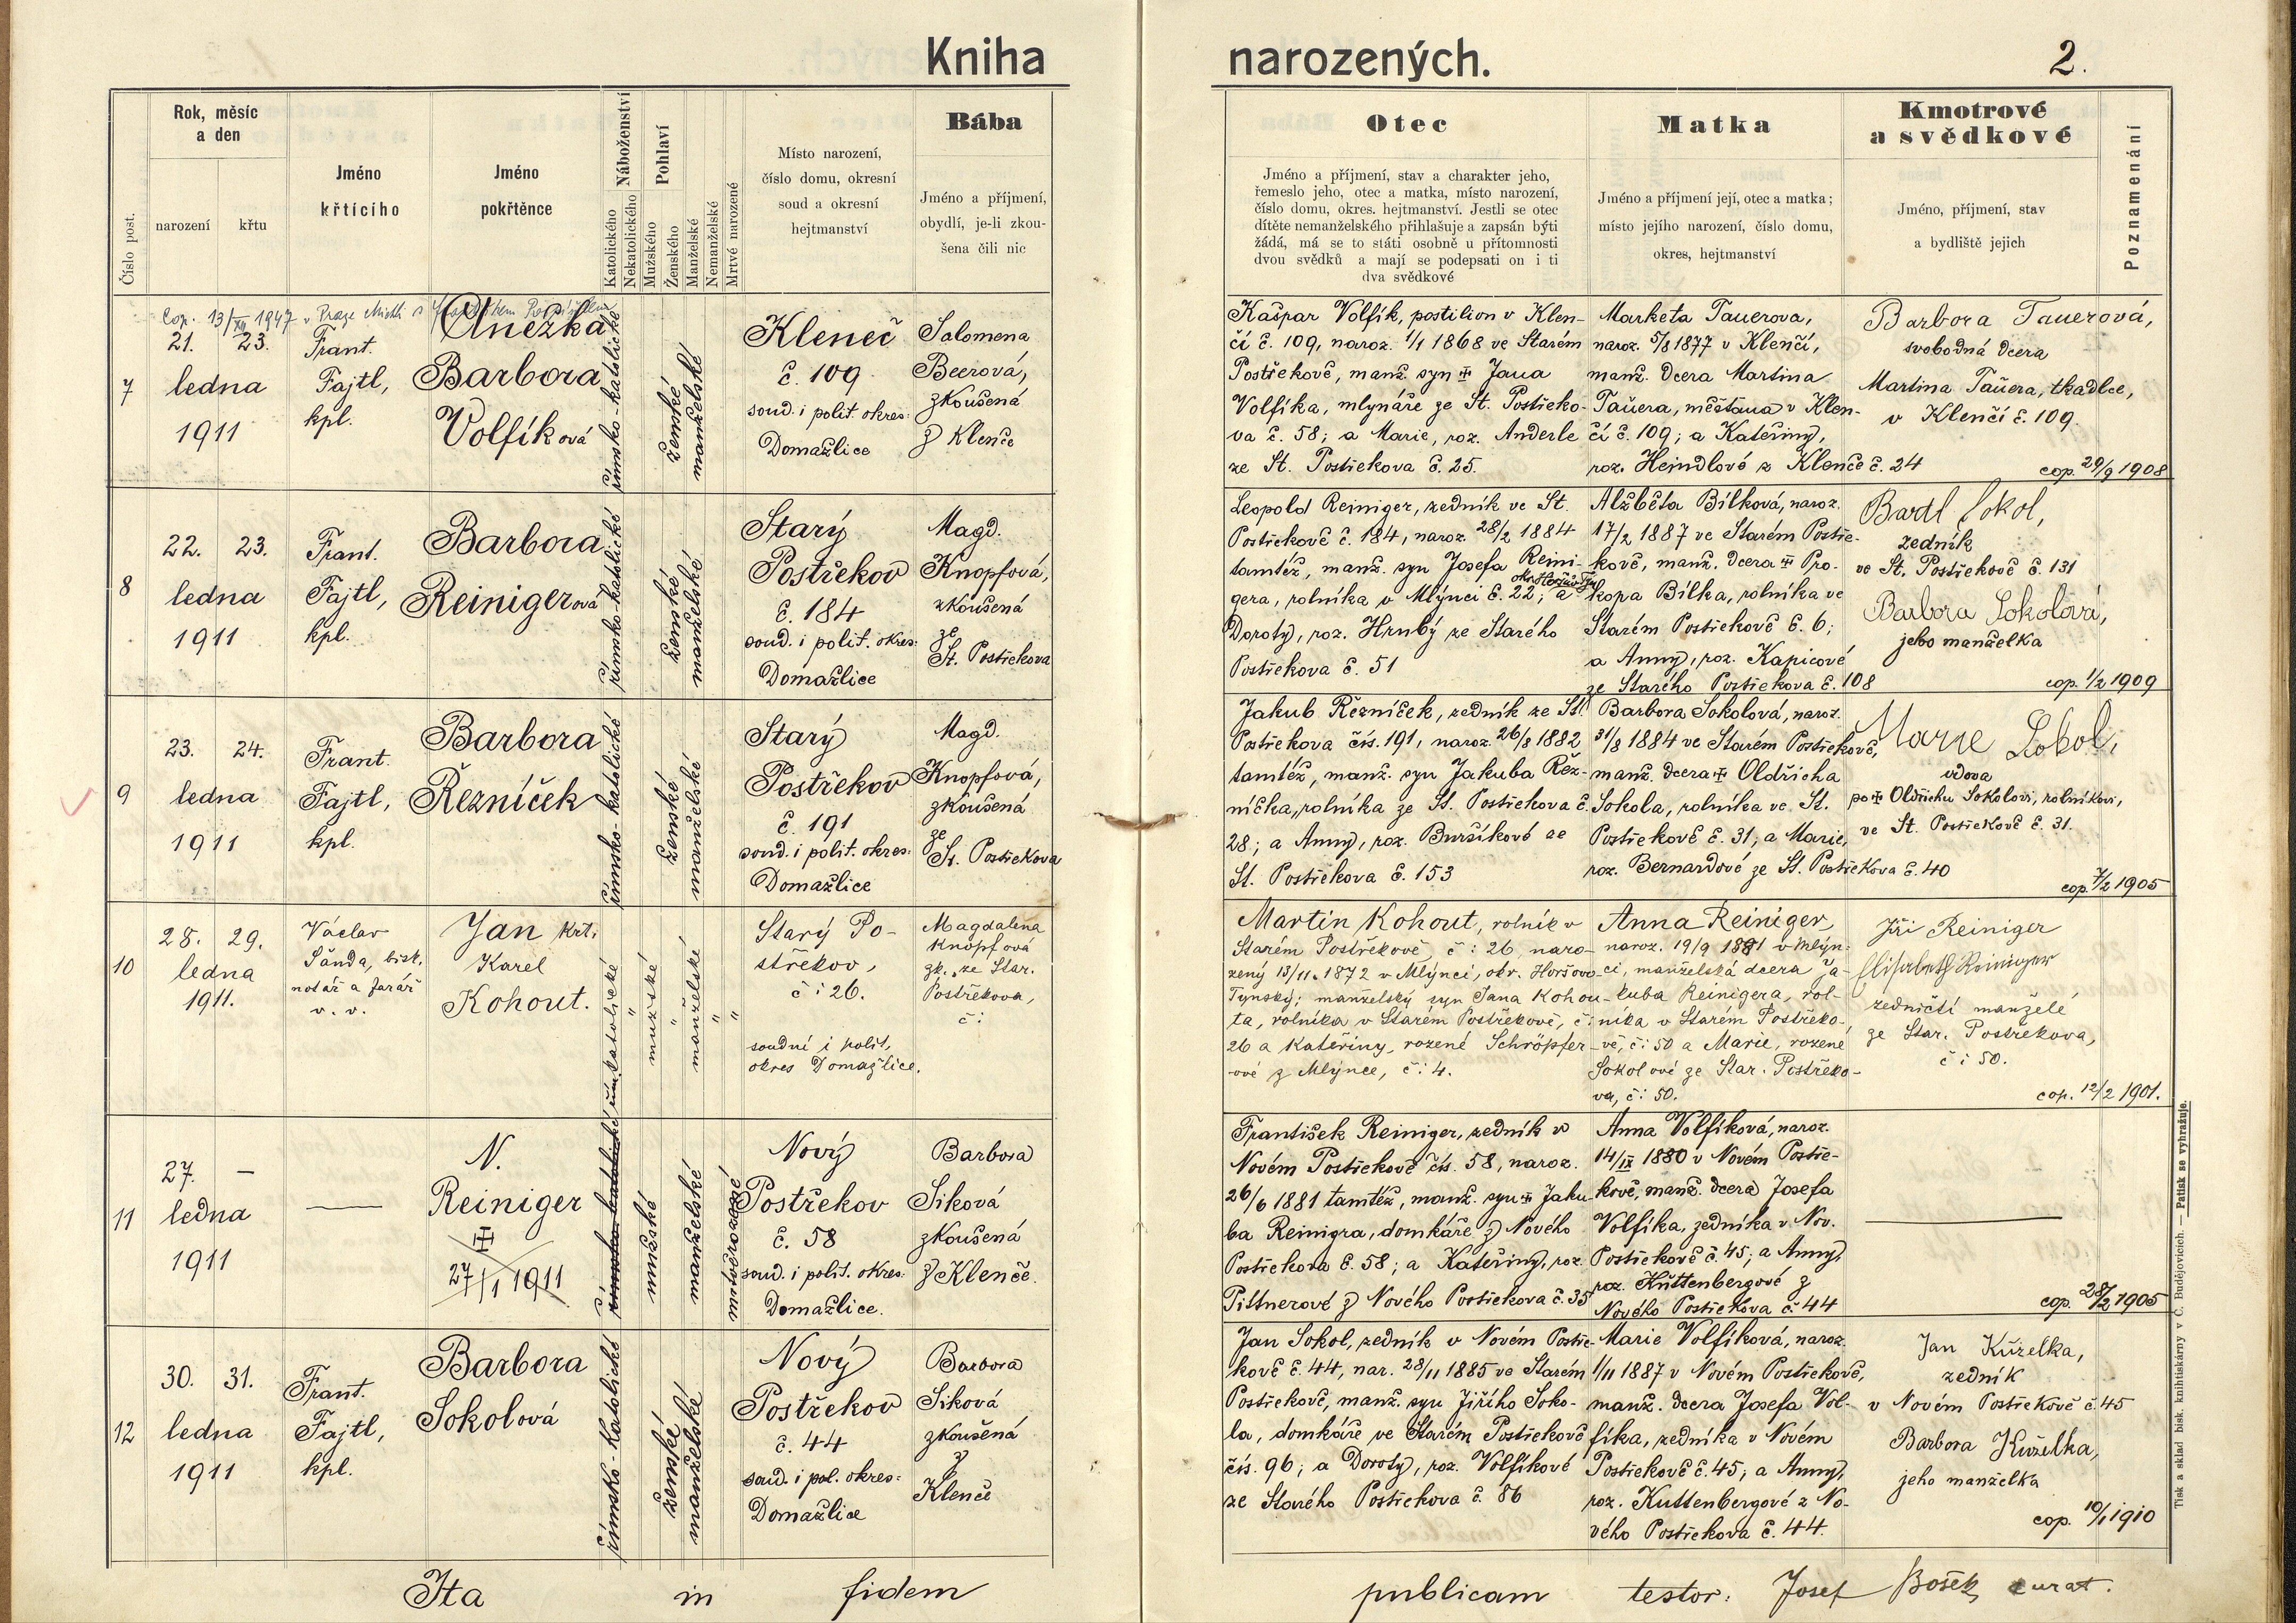 Kniha narozených.
2.
Číslo post.
Rok, měsíc
a den
narození
křtu
Jméno
křtícího
Jméno
pokřtěnce
Náboženství
Katolického
Nekatolického
Pohlaví
Mužského
Ženského
Manželské
Nemanželské
Mrtvě narozené
Místo narození,
číslo domu, okresní
soud a okresní
hejtmanství
Bába
Jméno a příjmení,
obydlí, je-li zkou-
šena čili nic
Otec
Jméno a příjmení, stav a charakter jeho,
řemeslo jeho, otec a matka, místo narození,
číslo domu, okres. hejtmanství. Jestli se otec
dítěte nemanželského přihlašuje a zapsán býti
žádá, má se to státi osobně u přítomnosti
dvou svědků a mají se podepsati on i ti
dva svědkové
Matka
Jméno a příjmení její, otec a matka;
místo jejího narození, číslo domu,
okres, hejtmanství
Kmotrové
a svědkové
Jméno, příjmení, stav
a bydliště jejich
Poznamenání
Cop. 13/XII 1947 v Praze
7
21. 23.
ledna
1911
Frant.
Fajtl,
kpl.
Anežka
Barbora
Volfíková
římsko-katolické
ženské
manželské
Kleneč
č. 109
soud. i polit. okres:
Domažlice
Salomena
Beerová,
zkoušená
z Klenče
Kašpar Volfík, postilion v Klen-
čí č. 109, naroz. 1/1 1868 ve Starém
Postřekově, manž. syn ♰ Jana
Volfíka, mlynáře ze St. Postřeko-
va č. 58; a Marie, roz. Anderle
ze St. Postřekova č. 25.
Marketa Tauerova,
naroz. 5/8 1877 v Klenčí,
manž. dcera Martina
Tauera, měšťana v Klen-
čí č. 109; a Kateřiny,
roz. Heindlové z Klenče č. 24
Barbora Tauerová,
svobodná dcera
Martina Tauera, tkadlce,
v Klenčí č. 109.
cop. 29/9 1908
8
22. 23.
ledna
1911
Frant.
Fajtl,
kpl.
Barbora
Reinigerová
římsko-katolické
ženské
manželské
Starý
Postřekov
č. 184
soud. i polit. okres:
Domažlice
Magd.
Knopfová,
zkoušená
ze
St. Postřekova
Leopold Reiniger, zedník ve St.
Postřekově č. 184, naroz. 28/2 1884
tamtéž, manž. syn Josefa Reini-
gera, rolníka v Mlýnci č. 22; a
Doroty, roz. Hrubý ze Starého
Postřekova č. 51
Alžběta Bílková, naroz.
17/2 1887 ve Starém Postře-
kově, manž. dcera ♰ Pro-
kopa Bílka, rolníka ve
Starém Postřekově č. 6;
a Anny, roz. Kapicové
ze Starého Postřekova č. 108
Bartl Sokol,
zedník
ve St. Postřekově č. 131
Barbora Sokolová,
jeho manželka
cop. 1/2 1909
9
23. 24.
ledna
1911
Frant.
Fajtl,
kpl.
Barbora
Řezníček
římsko-katolické
ženské
manželské
Starý
Postřekov
č. 191
soud. i polit. okres:
Domažlice
Magd.
Knopfová,
zkoušená
ze
St. Postřekova
Jakub Řezníček, zedník ze St.
Postřekova čís. 191, naroz. 26/8 1882
tamtéž, manž. syn Jakuba Řez-
níčka, rolníka ze St. Postřekova č.
28; a Anny, roz. Buršíkové ze
St. Postřekova č. 153
Barbora Sokolová, naroz.
31/8 1884 ve Starém Postřekově,
manž. dcera ♰ Oldřicha
Sokola, rolníka ve St.
Postřekově č. 31, a Marie,
roz. Bernardové ze St. Postřekova č. 40
Marie Sokol,
vdova
po ♰ Oldřichu Sokolovi, rolníkovi,
ve St. Postřekově č. 31.
cop. 7/2 1905
10
28. 29.
ledna
1911.
Václav
Šanda, bisk.
notář a farář
v. v.
Jan Křt.
Karel
Kohout.
řím. katolické
"
mužské
"
manželské
"
"
Starý Po-
střekov,
č: 26.
soudní i polit.
okres Domažlice.
Magdalena
Knopfová
zk. ze Star.
Postřekova,
č:
Martin Kohout, rolník v
Starém Postřekově, č: 26, naro-
zený 13/11. 1872 v Mlýnci, okr. Horšovo-
Týnský; manželský syn Jana Kohou-
ta, rolníka v Starém Postřekově, č:
26 a Kateřiny, rozené Schröpfer-
ové z Mlýnce, č: 4.
Anna Reiniger,
naroz. 19/9 1881 v Mlýn-
ci, manželská dcera Ja-
kuba Reinigera, rol-
níka v Starém Postřeko-
vě, č: 50 a Marie, rozené
Sokolové ze Star. Postřeko-
va, č: 50.
Jiří Reiniger
Elisabeth Reininger
zedničtí manželé
ze Star. Postřekova,
č: 50.
cop. 12/2 1901.
11
27. –
ledna
1911
N.
Reiniger
♰
27/1 1911
římsko katolické
mužské
manželské
mrtvěrozené
Nový
Postřekov
č. 58
soud. i polit. okres:
Domažlice.
Barbora
Siková
zkoušená
z Klenče.
František Reiniger, zedník v
Novém Postřekově čís. 58, naroz.
26/6 1881 tamtéž, manž. syn ♰ Jaku-
ba Reinigra, domkáře z Nového
Postřekova č. 58; a Kateřiny, roz.
Pittnerové z Nového Postřekova č. 35
Anna Volfíková, naroz.
14/IX 1880 v Novém Postře-
kově, manž. dcera Josefa
Volfíka, zedníka v Nov.
Postřekově č. 45; a Anny,
roz. Kuttenbergové z
Nového Postřekova č 44
cop. 28/2 1905
12
30. 31.
ledna
1911
Frant.
Fajtl,
kpl.
Barbora
Sokolová
římsko-katolické
ženské
manželské
Nový
Postřekov
č. 44
soud. i pol. okres:
Domažlice
Barbora
Siková
zkoušená
z
Klenče
Jan Sokol, zedník v Novém Postře-
kově č. 44, nar. 28/11 1885 ve Starém
Postřekově, manž. syn Jiřího Soko-
la, domkáře ve Starém Postřekově
čís. 96; a Doroty, roz. Volfíkové
ze Starého Postřekova č. 86
Marie Volfíková, naroz.
1/11 1887 v Novém Postřekově,
manž. dcera Josefa Vol-
fíka, zedníka v Novém
Postřekově č. 45; a Anny,
roz. Kuttenbergové z No-
vého Postřekova č. 44.
Jan Kuželka,
zedník
v Novém Postřekově č. 45
Barbora Kuželka,
jeho manželka
cop. 10/1 1910
Ita in fidem publicam testor: Josef Bošek curat.
Tisk a sklad bisk. knihtiskárny v Č. Budějovicích. — Patisk se vyhražuje.